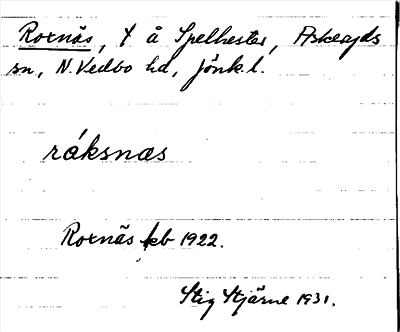 Roxnäs, t å Spelhester, Askeryds
sn, N. Vedbo hd, Jönk. l.
råksnas
Roxnäs jkb 1922.
Stig Stjärne 1931.